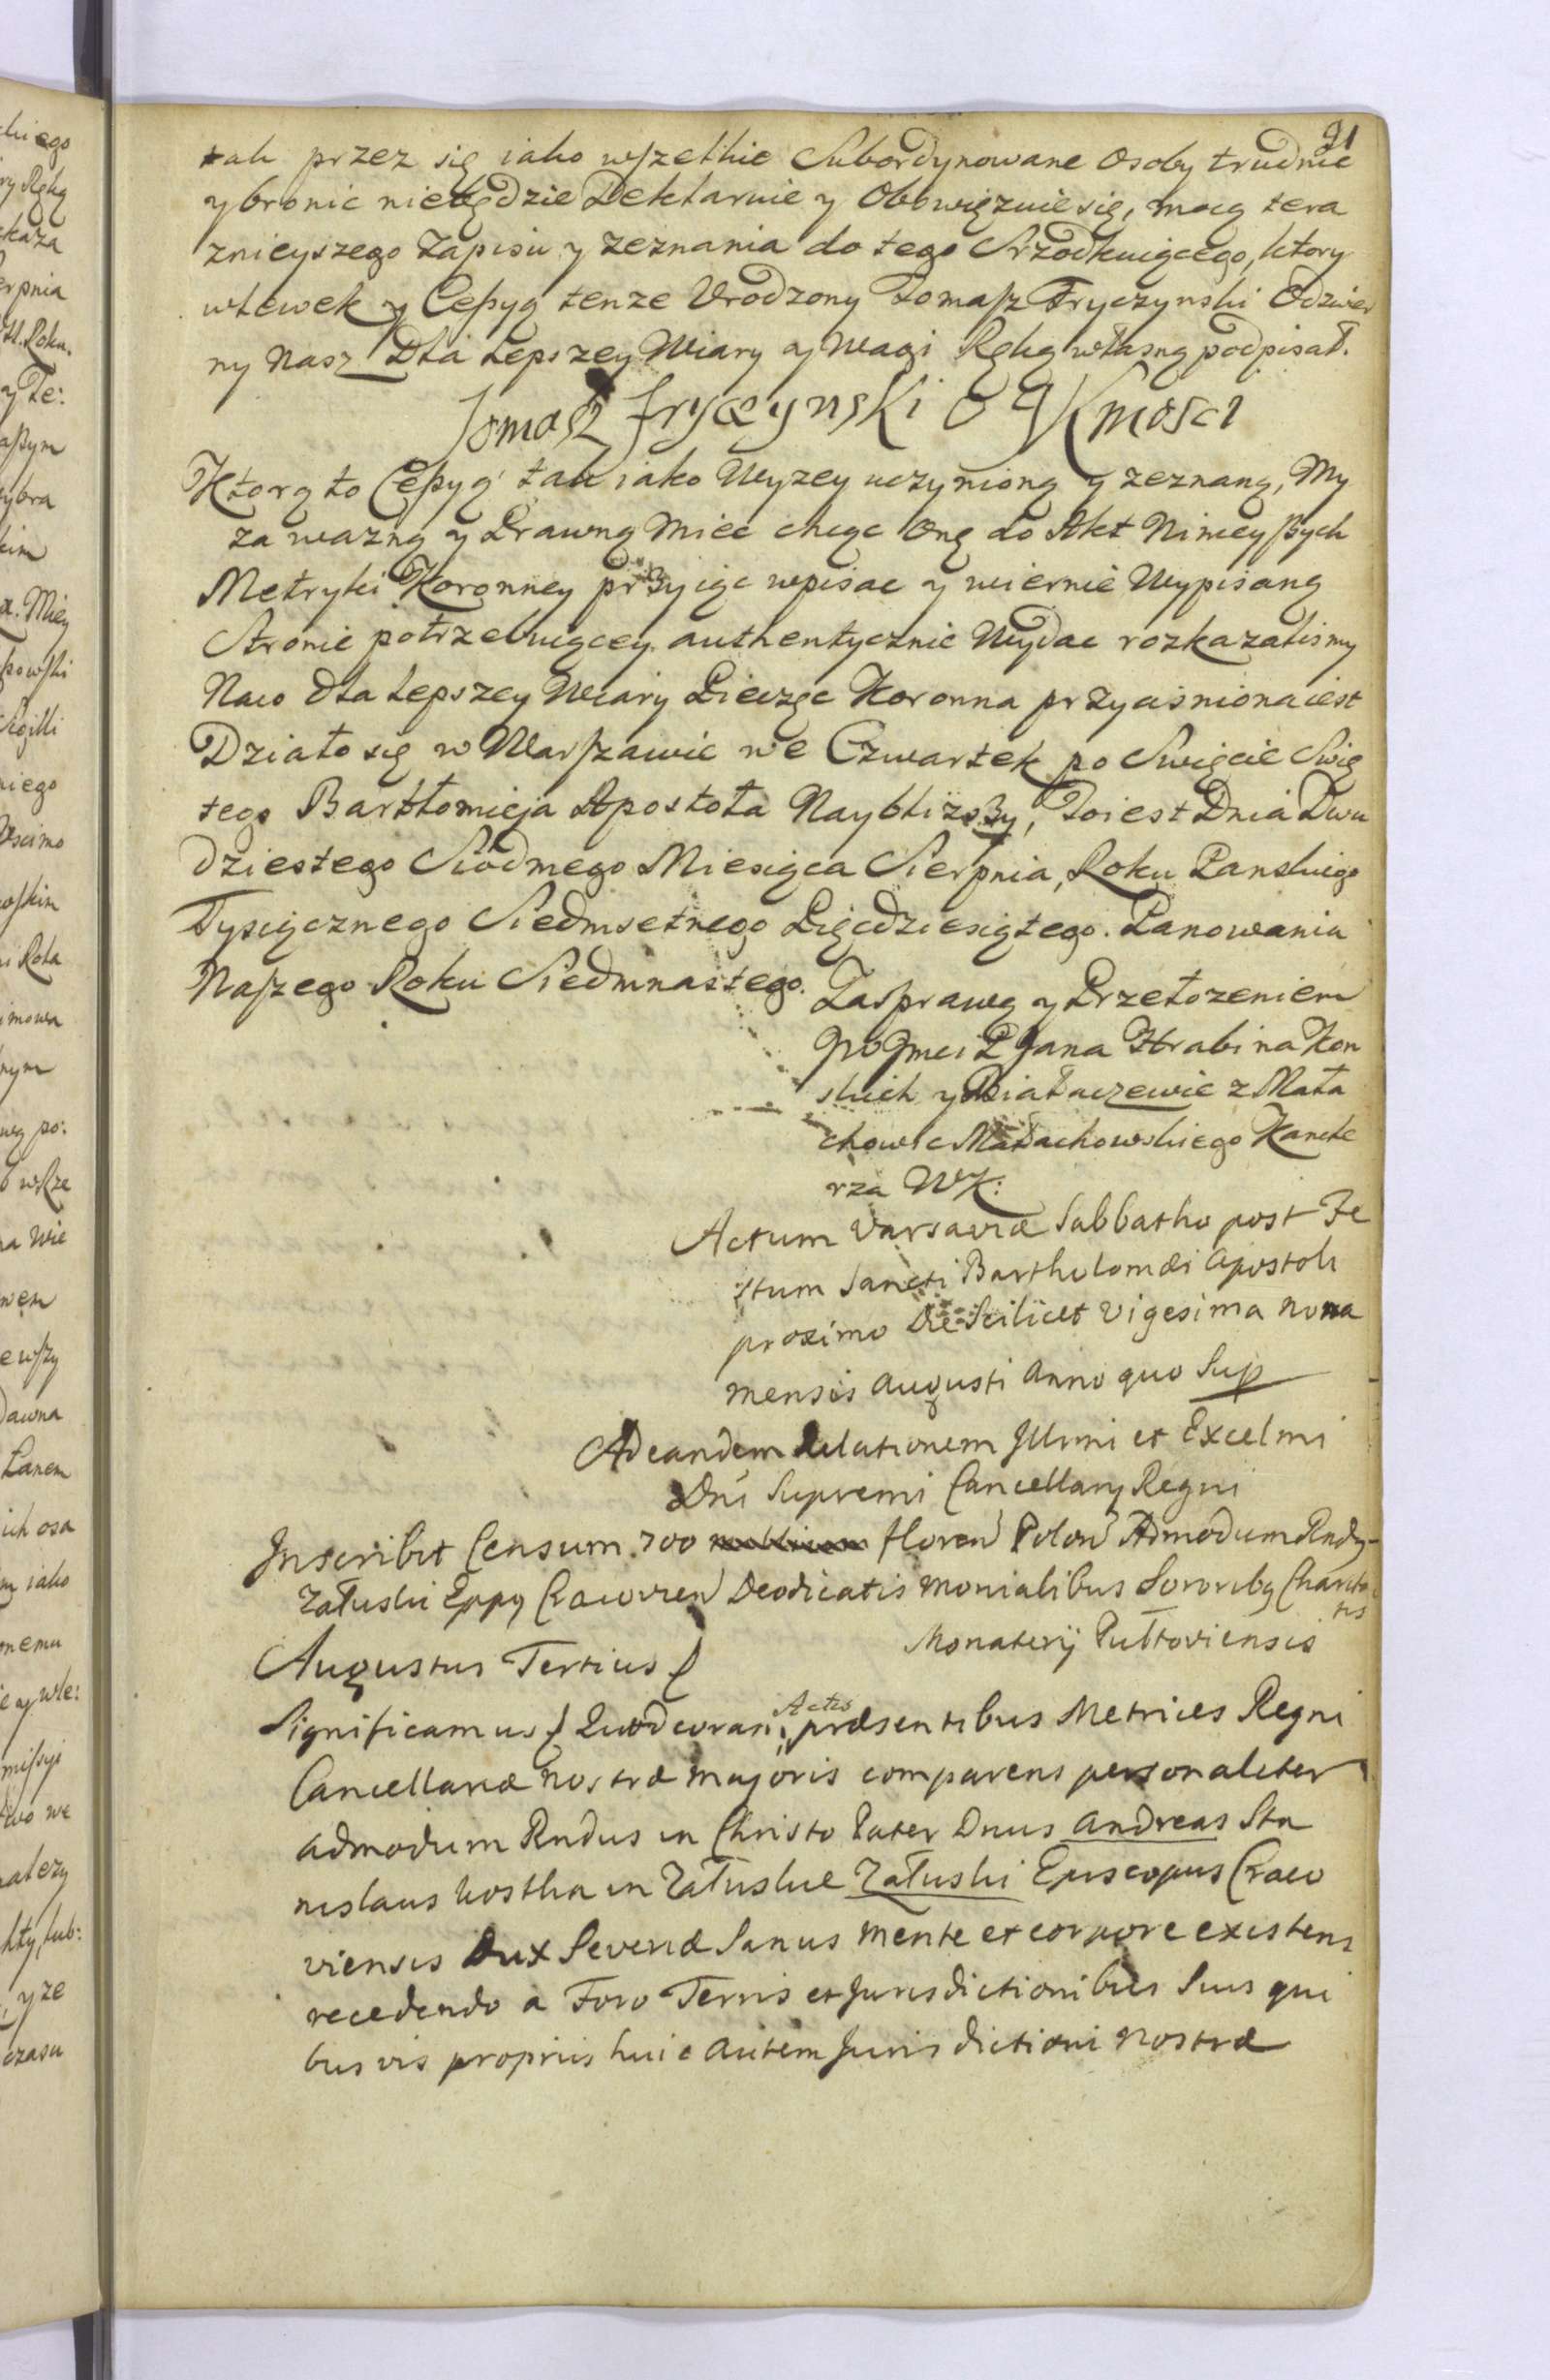 91
tak przez się iako wszelkie Subordynowane Osoby trudnic
y bronic niebędzie Deklaruie y Obowięzuie się, mocą tera
znieyszego Zapisu y zeznania do tego Srzodkuiącego, ktory
wlewek y Cessyą tenze Urodzony Tomasz Fryczynski Odzwier
ny Nasz Dla Lepszey Wiary y Wagi Ręką własną podpisał.
Tomasz Fryczynski O J K Mosci
Ktorą to Cessyą tak iako Wyzey uczynioną y zeznaną, My
za wazną y Prawną Miec chcąc Oną do Akt Ninieyszych
Metryki Koronney przyiąc wpisac y wiernie Wypisaną
Stronie potrzebuiącey authentycznie Wydac rozkazalismy
Naco dla Lepszey Wiary Pieczęc Koronna przycisniona iest
Działo się w Warszawie we Czwartek po Swięcie Swię
tego Bartłomieja Apostoła Naybliższy, To iest Dnia Dwu
dziestego Siodmego Miesiąca Sierpnia, Roku Panskiego
Tysiącznego Siedmsetnego Pięcdziesiątego. Panowania
Naszego Roku Siedmnastego.
Za sprawą y Przełozeniem
JW Jmci P Jana Hrabi na Kon
skich y Białaczewie z Mała
chowic Małachowskiego Kancle
rza WK:
Actum Varsaviæ Sabbatho post Fe
stum Sancti Bartholomæi Apostoli
proximo Die Scilicet Vigesima nona
mensis Augusti Anno quo Sup
Ad eandem Relationem Illmi et Excelmi
Dni Supremi Cancellarij Regni
Inscribit Censum 700 floren Polon Admodum Rndy
Załuski Eppy Cracovien Deodicatis Monialibus Sororiby Charita
tis
Monaterij Pułtoviensis
Augustus Tertius
Significamus Quod coram Actis præsentibus Metrices Regni
Cancellariæ Nostræ Majoris comparens personaliter
Admodum Rndus in Christo Pater Dnus Andreas Sta
nislaus Kostka in Załuskie Załuski Episcopus Craco
viensis Dux Severiæ Sanus Mente et corpore existens
recedendo a Foro Terris et Jurisdictionibus Suis qui
bus vis propriis huic autem Jurisdictioni Nostræ